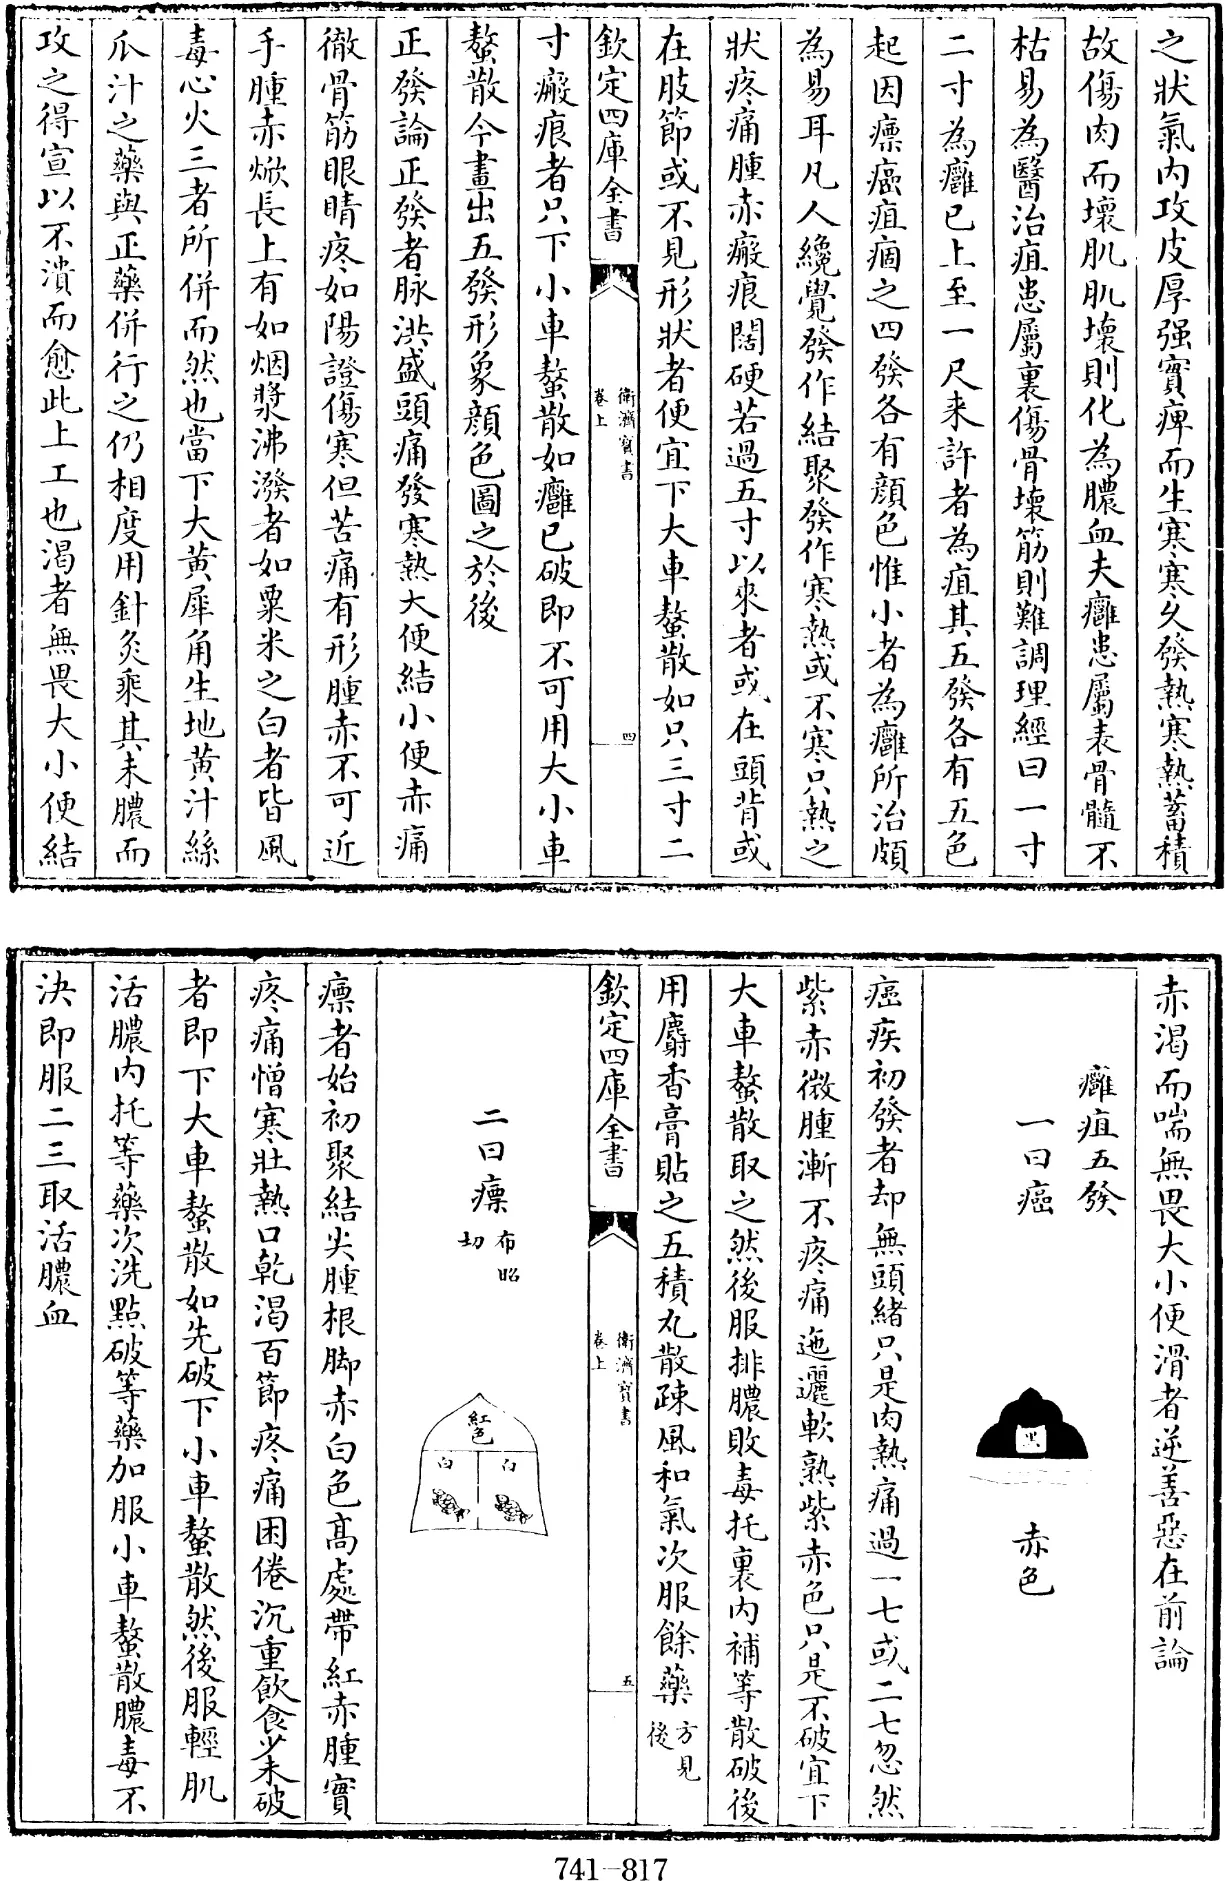 之狀氣内攻皮厚强實痺而生寒寒久發熱寒熱蓄積
故傷肉而壞肌肌壞則化為膿血夫癰患屬表骨髓不
枯易為醫治疽患屬裏傷骨壞筋則難調理經曰一寸
二寸為癰已上至一尺来許者為疽其五發各有五色
起因瘭癌疽痼之四發各有顔色惟小者為癰所治頗
為易耳凡人纔覺發作結聚發作寒熱或不寒只熱之
狀疼痛腫赤瘢痕闊硬若過五寸以來者或在頭背或
在肢節或不見形狀者便宜下大車螯散如只三寸二
欽定四庫全書
衛濟寳書
卷上
四
寸瘢痕者只下小車螯散如癰已破即不可用大小車
螯散今畫出五發形象顔色圖之於後
正發論正發者脉洪盛頭痛發寒熱大便結小便赤痛
徹骨筋眼睛疼如陽證傷寒但苦痛有形腫赤不可近
手腫赤焮長上有如烟漿沸潑者如粟米之白者皆風
毒心火三者所併而然也當下大黄犀角生地黄汁絲
瓜汁之藥與正藥併行之仍相度用針灸乘其未膿而
攻之得宣以不潰而愈此上工也渴者無畏大小便結
赤渴而喘無畏大小便滑者逆善惡在前論
癰疽五發
一曰癌
黑
赤色
癌疾初發者却無頭緒只是肉熱痛過一七或二七忽然
紫赤微腫漸不疼痛迤邐軟熟紫赤色只是不破宜下
大車螯散取之然後服排膿敗毒托裏内補等散破後
用麝香膏貼之五積丸散疎風和氣次服餘藥方見後
欽定四庫全書
衛濟寳書
卷上
五
二曰瘭布昭切
紅色
白
白
瘭者始初聚結尖腫根脚赤白色髙處帶紅赤腫實
疼痛憎寒壯熱口乾渴百節疼痛困倦沉重飲食少未破
者即下大車螯散如先破下小車螯散然後服輕肌
活膿内托等藥次洗點破等藥加服小車螯散膿毒不
決即服二三取活膿血
741-817